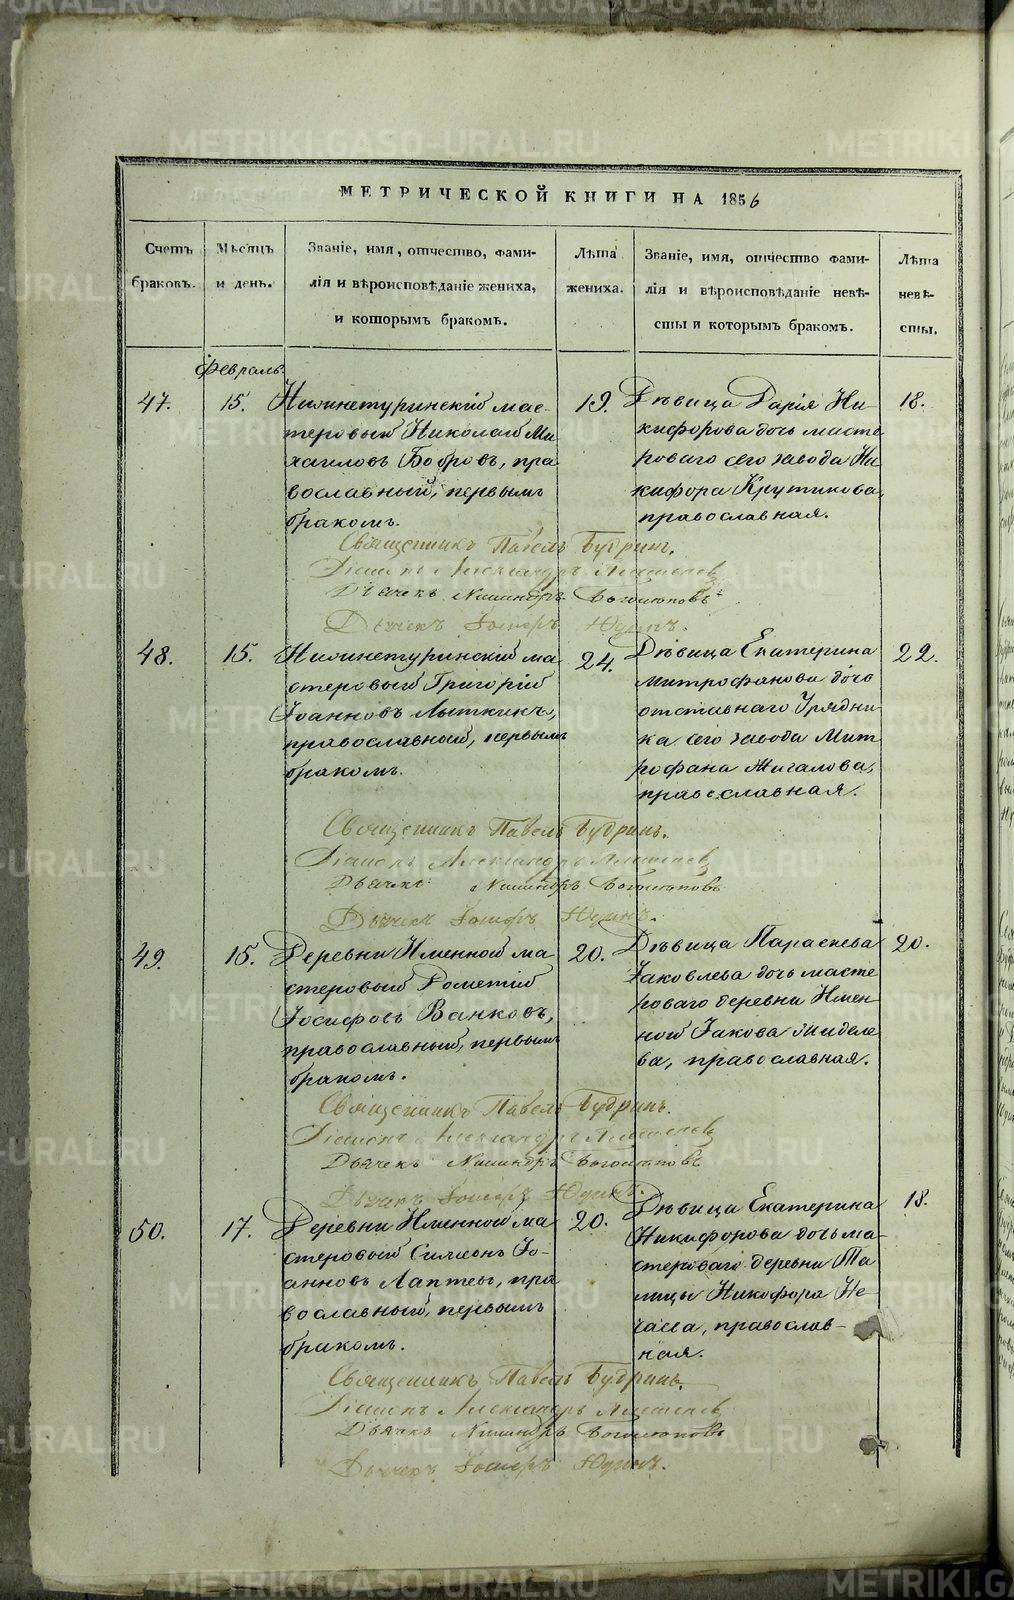 МЕТРИЧЕСКОЙ КНИГИ НА 1856
Счетъ браковъ.
Мѣсяцъ и день.
Званіе, имя, отчество, фами-
лія и вѣроисповѣданіе жениха,
и которымъ бракомъ.
Лѣта жениха.
Званіе, имя, отчество фами-
лія и вѣроисповѣданіе невѣ-
сты и которымъ бракомъ.
Лѣта невѣ-
сты.
Февраль.
47.
15.
Нижнетуринскій мас-
теровый Николай Ми
хаиловъ Бобровъ, пра
вославный, первымъ
бракомъ.
19.
Дѣвица Дарія Ни-
кифорова дочь масте
роваго сего завода Ни
кифора Крутикова,
православная.
18.
Священникъ Павелъ Будринъ.
Діаконъ Александръ
Дьячекъ
Дьячекъ
48.
15.
Нижнетуринскій ма
стеровый Григорій
Іоанновъ Лыткинъ,
православный, первымъ
бракомъ.
24.
Дѣвица Екатерина
Митрофанова дочь
отставнаго Урядни
ка сего завода Мит
рофана Мигалова,
православная.
22.
Священникъ Павелъ Будринъ.
Діаконъ Александръ
Дьячекъ
Дьячекъ
49.
15.
Деревни Именной ма
стеровый Дометій
Іосифовъ Ванковъ,
православный, первымъ
бракомъ.
20.
Дѣвица Параскева
Іаковлева дочь масте
роваго деревни Имен
ной Іакова
ва, православная.
20.
Священникъ Павелъ Будринъ.
Діаконъ Александръ
Дьячекъ
Дьячекъ
50.
17.
Деревни Именной ма
стеровый Симеонъ Іо-
анновъ Лаптевъ, пра
вославный, первымъ
бракомъ.
20.
Дѣвица Екатерина
Никифорова дочь ма-
стероваго деревни Та
лицы Никифора Не-
чаева, православ-
ная.
18.
Священникъ Павелъ Будринъ.
Діаконъ Александръ
Дьячекъ
Дьячекъ
METRIKI.GASO-URAL.RU